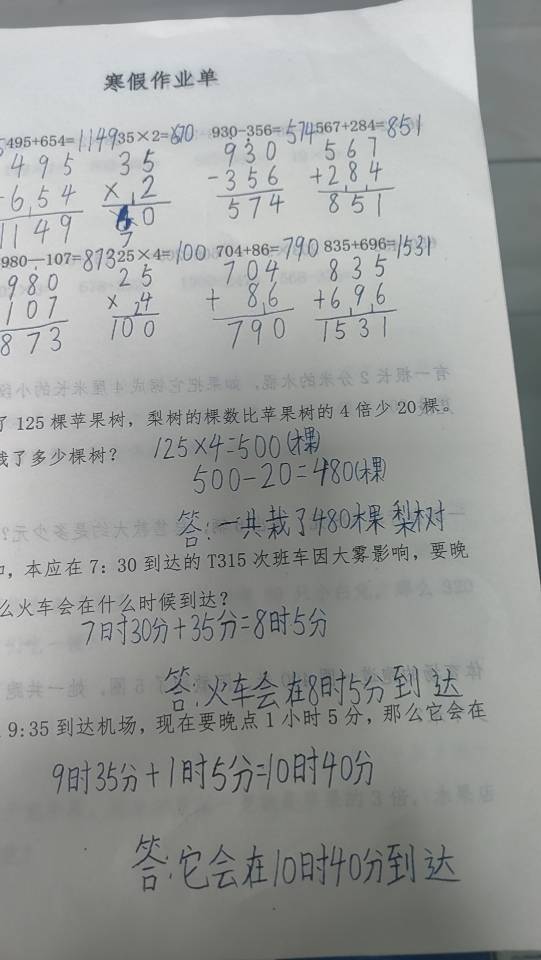 寒假作业单
495+654=1149 35×2=670 930-356=574 567+284=851
495 35 930 567
6,54 ×,2 -356 +2,8,4
1149 0 574 851
7
980—107=873 25×4=100 704+86=790 835+696=1531
980 25 704 835
107 ×24 + 8,6 +6,9,6
873 100 790 1531
了 125 棵苹果树，梨树的棵数比苹果树的 4 倍少 20 棵。
栽了多少棵树？ 125×4=500(棵)
500-20=480(棵)
答:一共栽了480棵梨树
，本应在 7：30 到达的 T315 次班车因大雾影响，要晚
么火车会在什么时候到达？
7时30分+35分=8时5分
答:火车会在8时5分到达
9:35 到达机场，现在要晚点 1 小时 5 分，那么它会在
9时35分+1时5分=10时40分
答:它会在10时40分到达